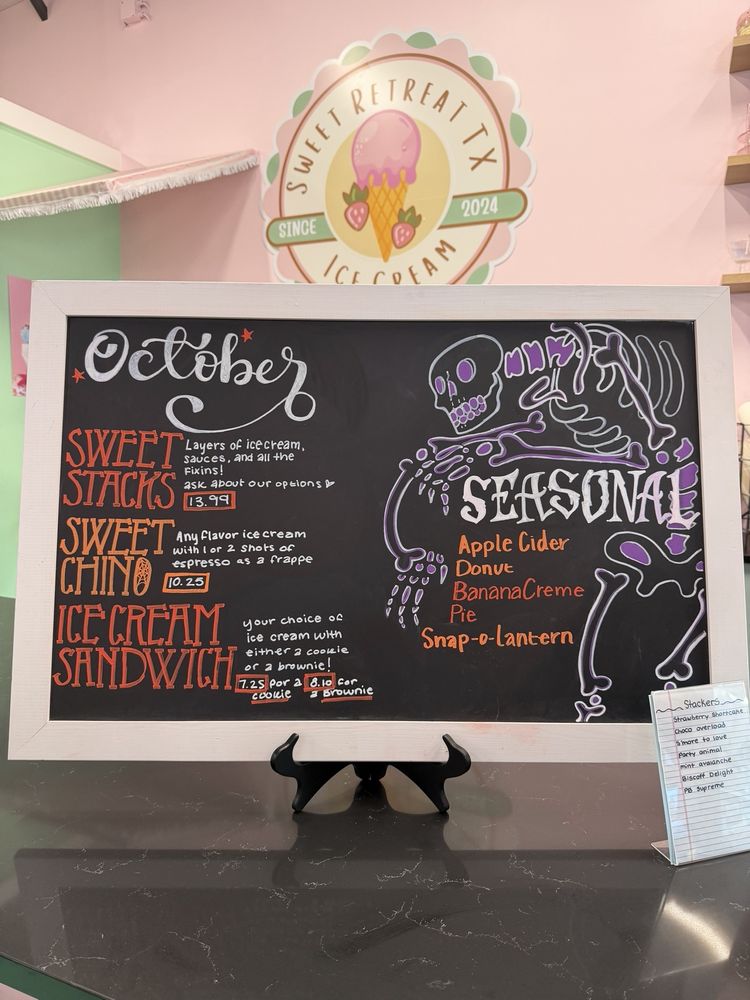 SWEET RETREAT TX
SINCE 2024
ICE CREAM
October
SWEET
STACKS
Layers of ice cream,
sauces, and all the
Fixins!
ask about our options
13.99
SWEET
CHINO
Any flavor ice cream
with 1 or 2 shots of
espresso as a frappe
10.25
ICE CREAM
SANDWICH
your choice of
ice cream with
either a cookie
or a brownie!
7.25 for a 8.10 for
cookie a Brownie
SEASONAL
Apple Cider
Donut
Banana Creme
Pie
Snap-o-lantern
Stackers
Strawberry Shortcake
choco overload
s'more to love
Party animal
mint avalanche
Biscoff Delight
PB Supreme